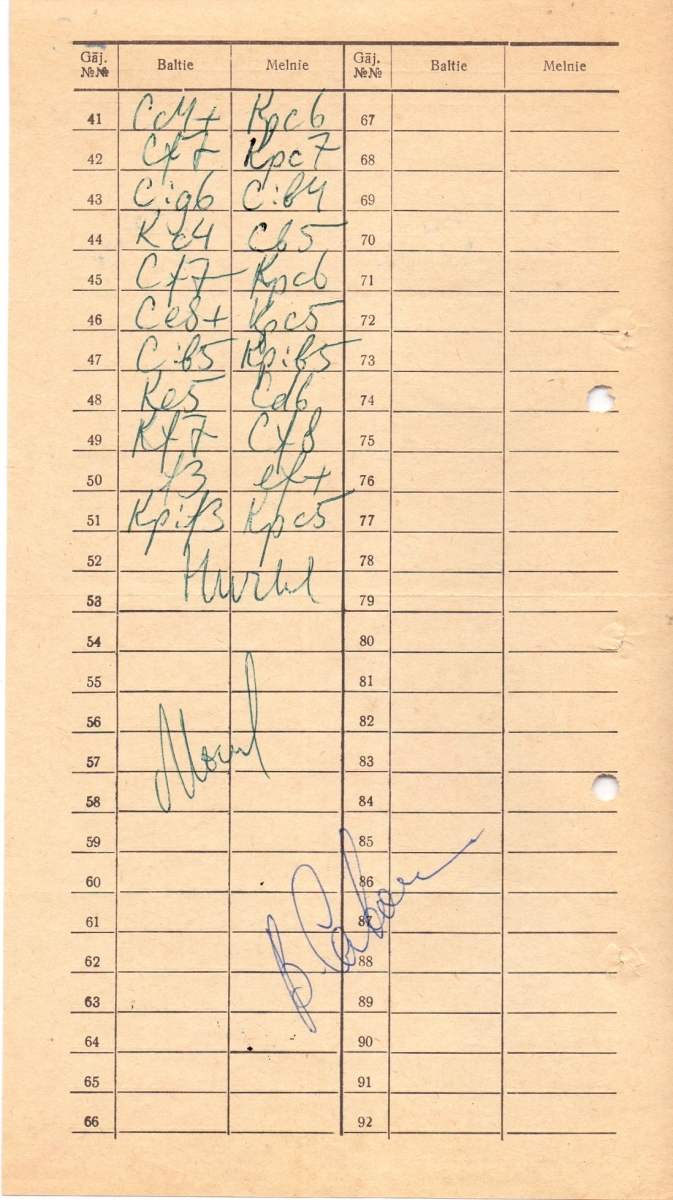 Gāj. №№ Baltie Melnie Gāj. №№ Baltie Melnie
41 Cc4+ Kpc6 67
42 Cf7 Kpc7 68
43 Cig6 Cib4 69
44 Kc4 Cb5 70
45 Cf7 Kpc6 71
46 Ce8+ Kpc5 72
47 Cib5 Kpib5 73
48 Ke5 Cd6 74
49 Kf7 Cf8 75
50 f3 ef+ 76
51 Kpif3 Kpc5 77
52 78
53 79
54 80
55 81
56 82
57 83
58 84
59 85
60 86
61 87
62 88
63 89
64 90
65 91
66 92